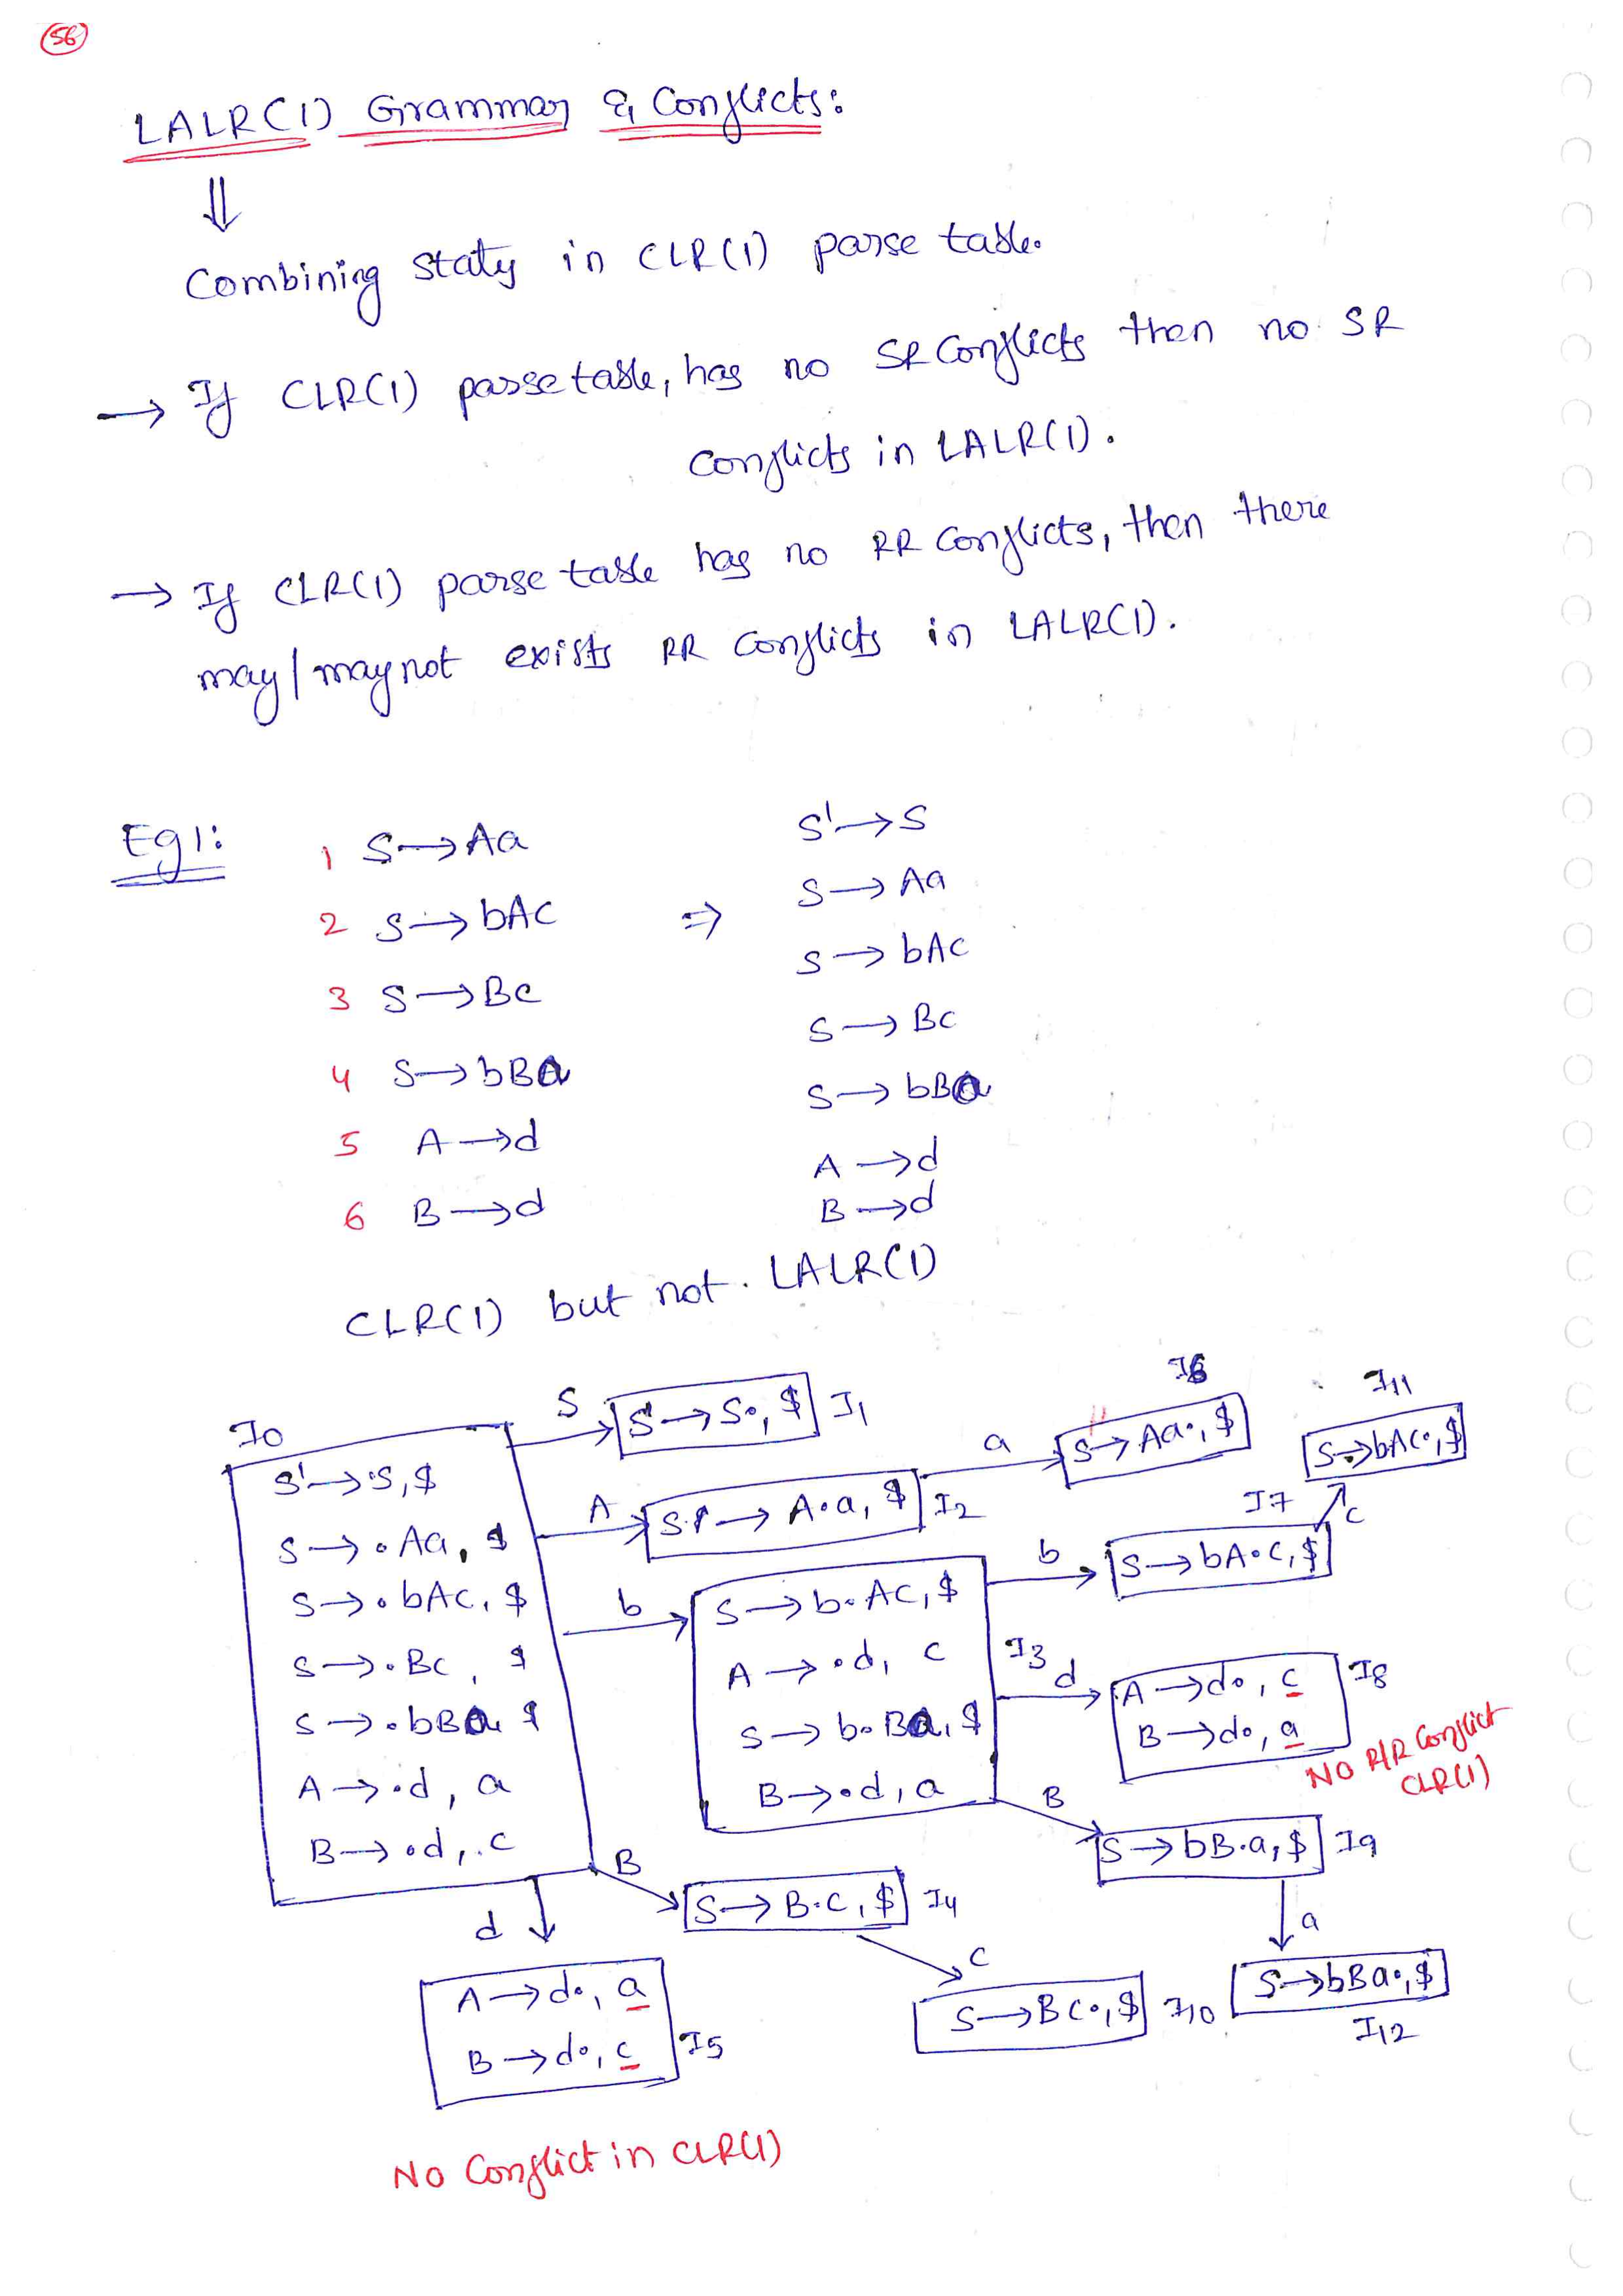 56
LALR(1) Grammar & Conflicts:
⇓
Combining States in CLR(1) parse table.
→ If CLR(1) parse table, has no SR Conflicts then no SR
Conflicts in LALR(1).
→ If CLR(1) parse table has no RR Conflicts, then there
may/may not exists RR Conflicts in LALR(1).
Eg1:
1 S→Aa
2 S→bAc
3 S→Bc
4 S→bBa
5 A→d
6 B→d
⇒
S'→S
S→Aa
S→bAc
S→Bc
S→bBa
A→d
B→d
CLR(1) but not. LALR(1)
I0
S'→·S,$
S→·Aa,$
S→·bAc,$
S→·Bc,$
S→·bBa,$
A→·d,a
B→·d,c
S
S'→S·,$ I1
A
S→A·a,$ I2
a
S→Aa·,$
I6
b
S→b·Ac,$
A→·d, c
S→b·Ba,$
B→·d,a
I3
b
S→bA·c,$
I7
c
S→bAc·,$
I11
d
A→d·,c
B→d·,a
I8
NO R/R Conflict
CLR(1)
B
S→bB·a,$ I9
a
S→bBa·,$
I12
B
S→B·c,$ I4
c
S→Bc·,$ I10
d
A→d·,a
B→d·,c
I5
No Conflict in CLR(1)